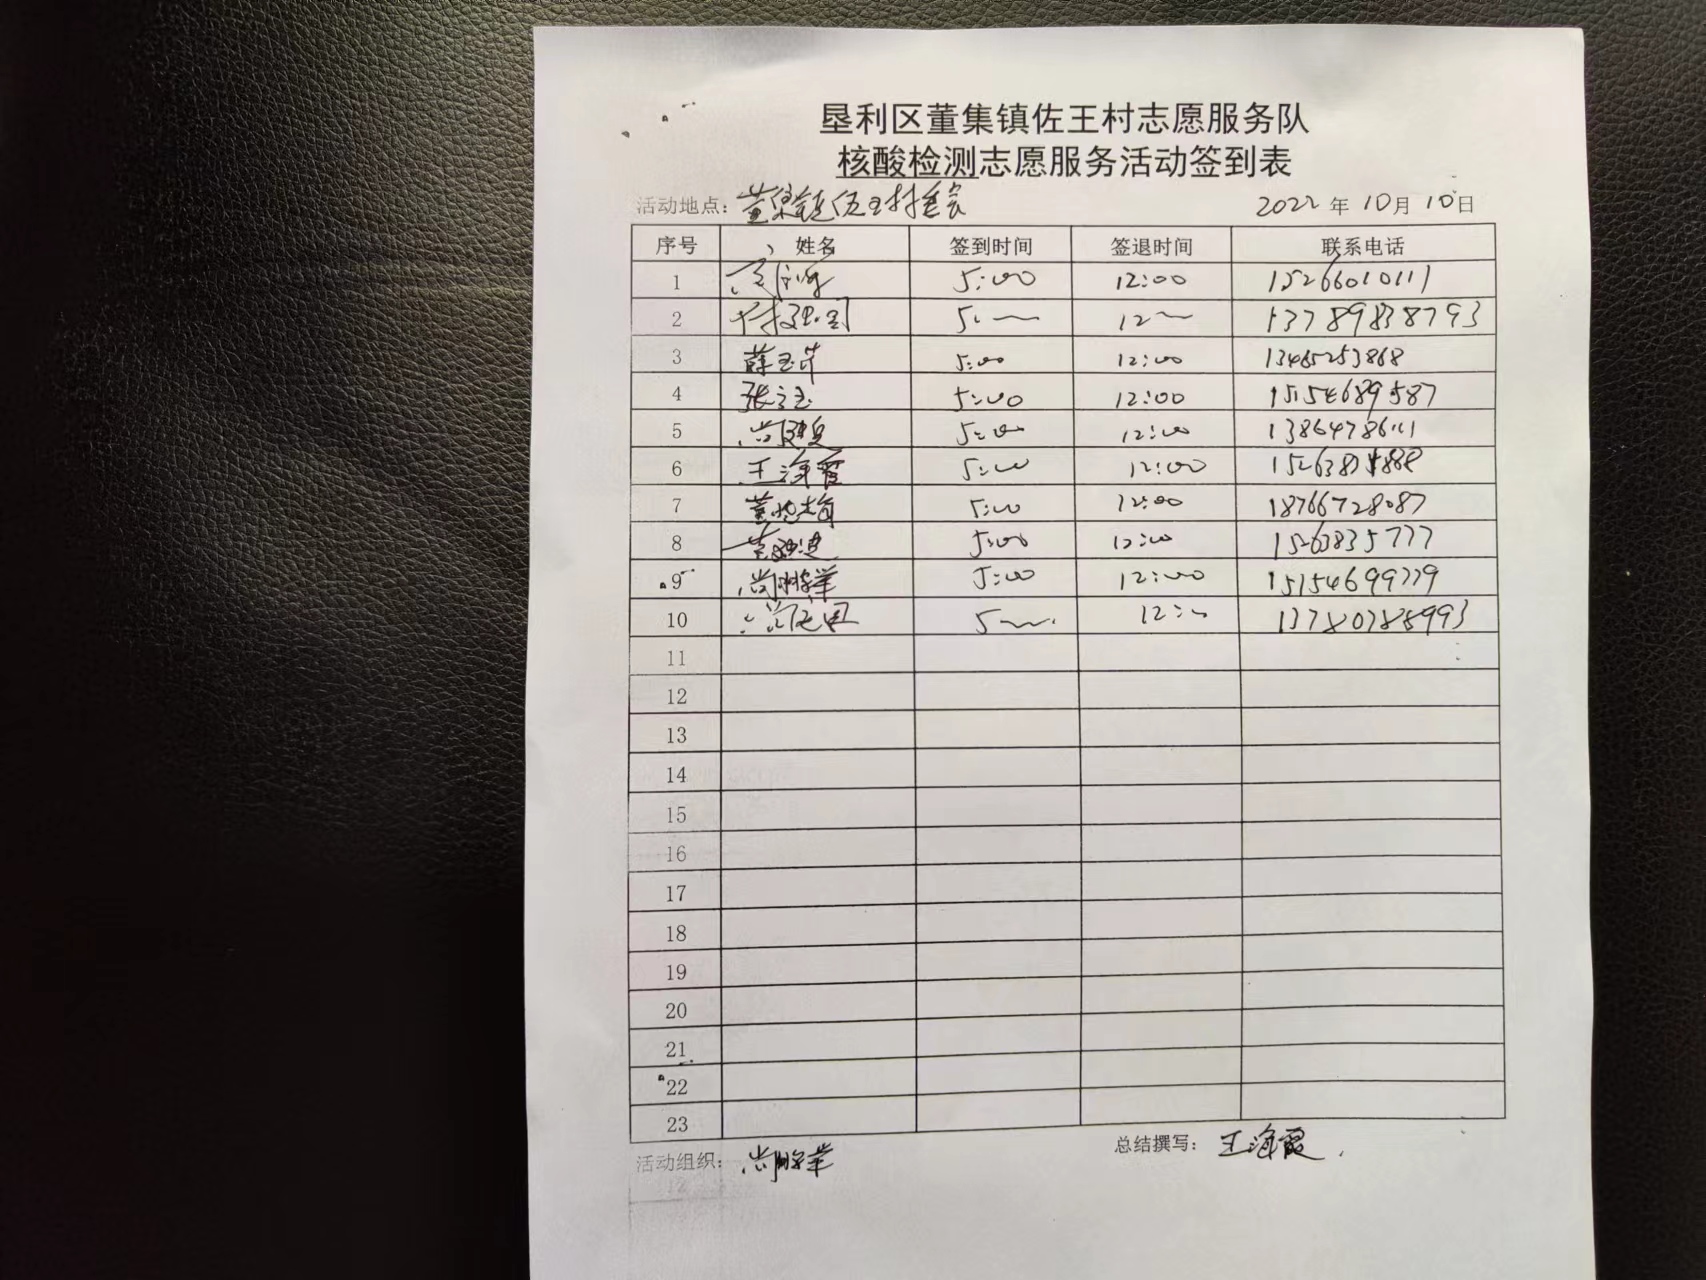 垦利区董集镇佐王村志愿服务队
核酸检测志愿服务活动签到表
活动地点：董集镇佐王村委会 2022年10月10日
序号 姓名 签到时间 签退时间 联系电话
1 5:00 12:00 15266010111
2 5:~ 12~ 13789838793
3 薛玉芹 5:00 12:00 13465253868
4 张立玉 5:00 12:00 15154689587
5 5:00 12:00 13864786111
6 王海霞 5:00 12:00
7 5:00 12:00 18766728087
8 5:00 12:00 15263835777
9 尚鹏举 5:00 12:00 15154699779
10 5~ 12:~ 13780785993
11
12
13
14
15
16
17
18
19
20
21
22
23
活动组织：尚鹏举 总结撰写：王海霞